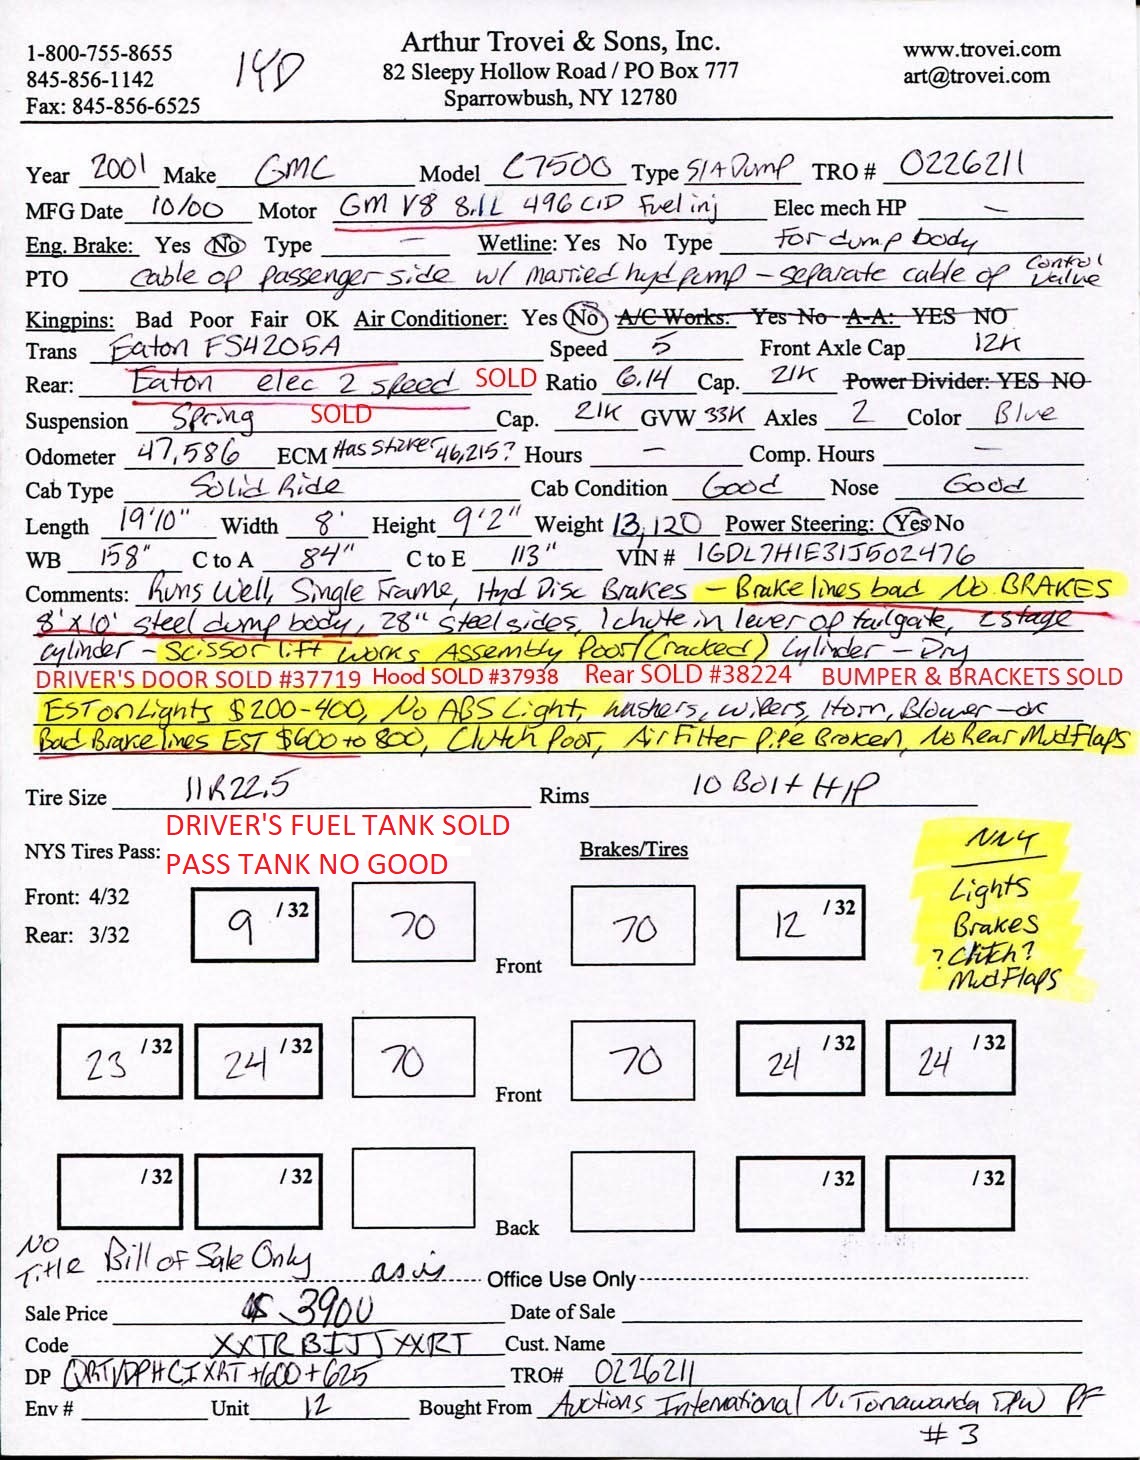 1-800-755-8655
845-856-1142
Fax: 845-856-6525
14D
Arthur Trovei & Sons, Inc.
82 Sleepy Hollow Road / PO Box 777
Sparrowbush, NY 12780
www.trovei.com
art@trovei.com
Year 2001 Make GMC Model C7500 Type S/A Dump TRO # 0226211
MFG Date 10/00 Motor GM V8 8.1L 496 CID Fuel inj Elec mech HP —
Eng. Brake: Yes No Type — Wetline: Yes No Type For dump body
PTO cable op passenger side w/ married hyd pump - separate cable op control valve
Kingpins: Bad Poor Fair OK Air Conditioner: Yes No A/C Works: Yes No A-A: YES NO
Trans Eaton FS4205A Speed 5 Front Axle Cap 12K
Rear: Eaton elec 2 speed SOLD Ratio 6.14 Cap. 21K Power Divider: YES NO
Suspension Spring SOLD Cap. 21K GVW 33K Axles 2 Color Blue
Odometer 47,586 ECM Has 46,215? Hours — Comp. Hours —
Cab Type Solid Ride Cab Condition Good Nose Good
Length 19'10" Width 8' Height 9'2" Weight 13,120 Power Steering: Yes No
WB 158" C to A 84" C to E 113" VIN # 1GDL7H1E31J502476
Comments: Runs Well, Single Frame, Hyd Disc Brakes - Brake lines bad No BRAKES
8' x 10' steel dump body, 28" steel sides, 1 chute in lever op tailgate, 2 stage
cylinder - Scissor lift works Assembly Poor (Cracked) Cylinder - Dry
DRIVER'S DOOR SOLD #37719 Hood SOLD #37938 Rear SOLD #38224 BUMPER & BRACKETS SOLD
EST on Lights $200-400, No ABS Light, washers, wipers, Horn, Blower - ok
Bad Brake lines EST $600 to 800, Clutch Poor, Air Filter Pipe Broken, No Rear Mud Flaps
Tire Size 11R22.5 Rims 10 Bolt H/P
DRIVER'S FUEL TANK SOLD
NYS Tires Pass: PASS TANK NO GOOD Brakes/Tires
NNY
Lights
Brakes
? Clutch?
Mud Flaps
Front: 4/32
Rear: 3/32
9 /32 70 Front 70 12 /32
23 /32 24 /32 70 Front 70 24 /32 24 /32
/32 /32 Back /32 /32
No Title Bill of Sale Only as is Office Use Only
Sale Price $ 3900 Date of Sale
Code XXTRBIJJXXRT Cust. Name
DP QRTVDPHCIXRT +600+625 TRO# 0226211
Env # Unit 12 Bought From Auctions International N. Tonawanda DPW PF
#3